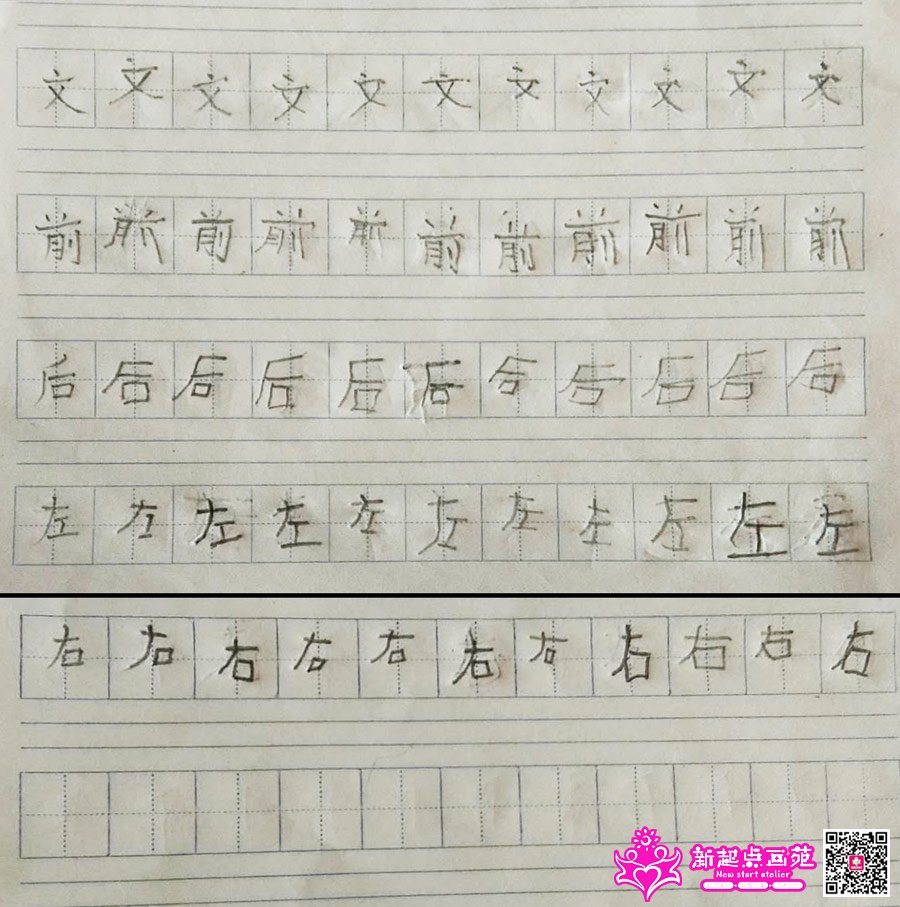 文文文文文文文文文文文
前前前前前前前前前前前
后后后后后后后后后后后
左左左左左左左左左左左
右右右右右右右右右右右
新起点画苑
New start atelier